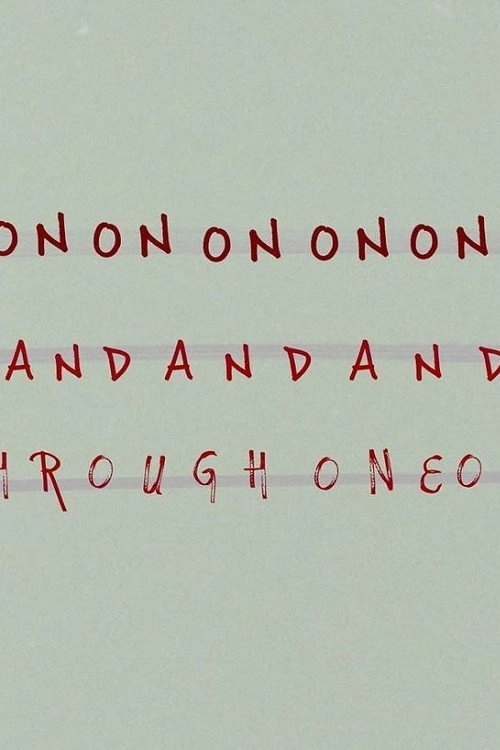 ON ON ON ON ON
AND AND AND
HROUGH ONEO